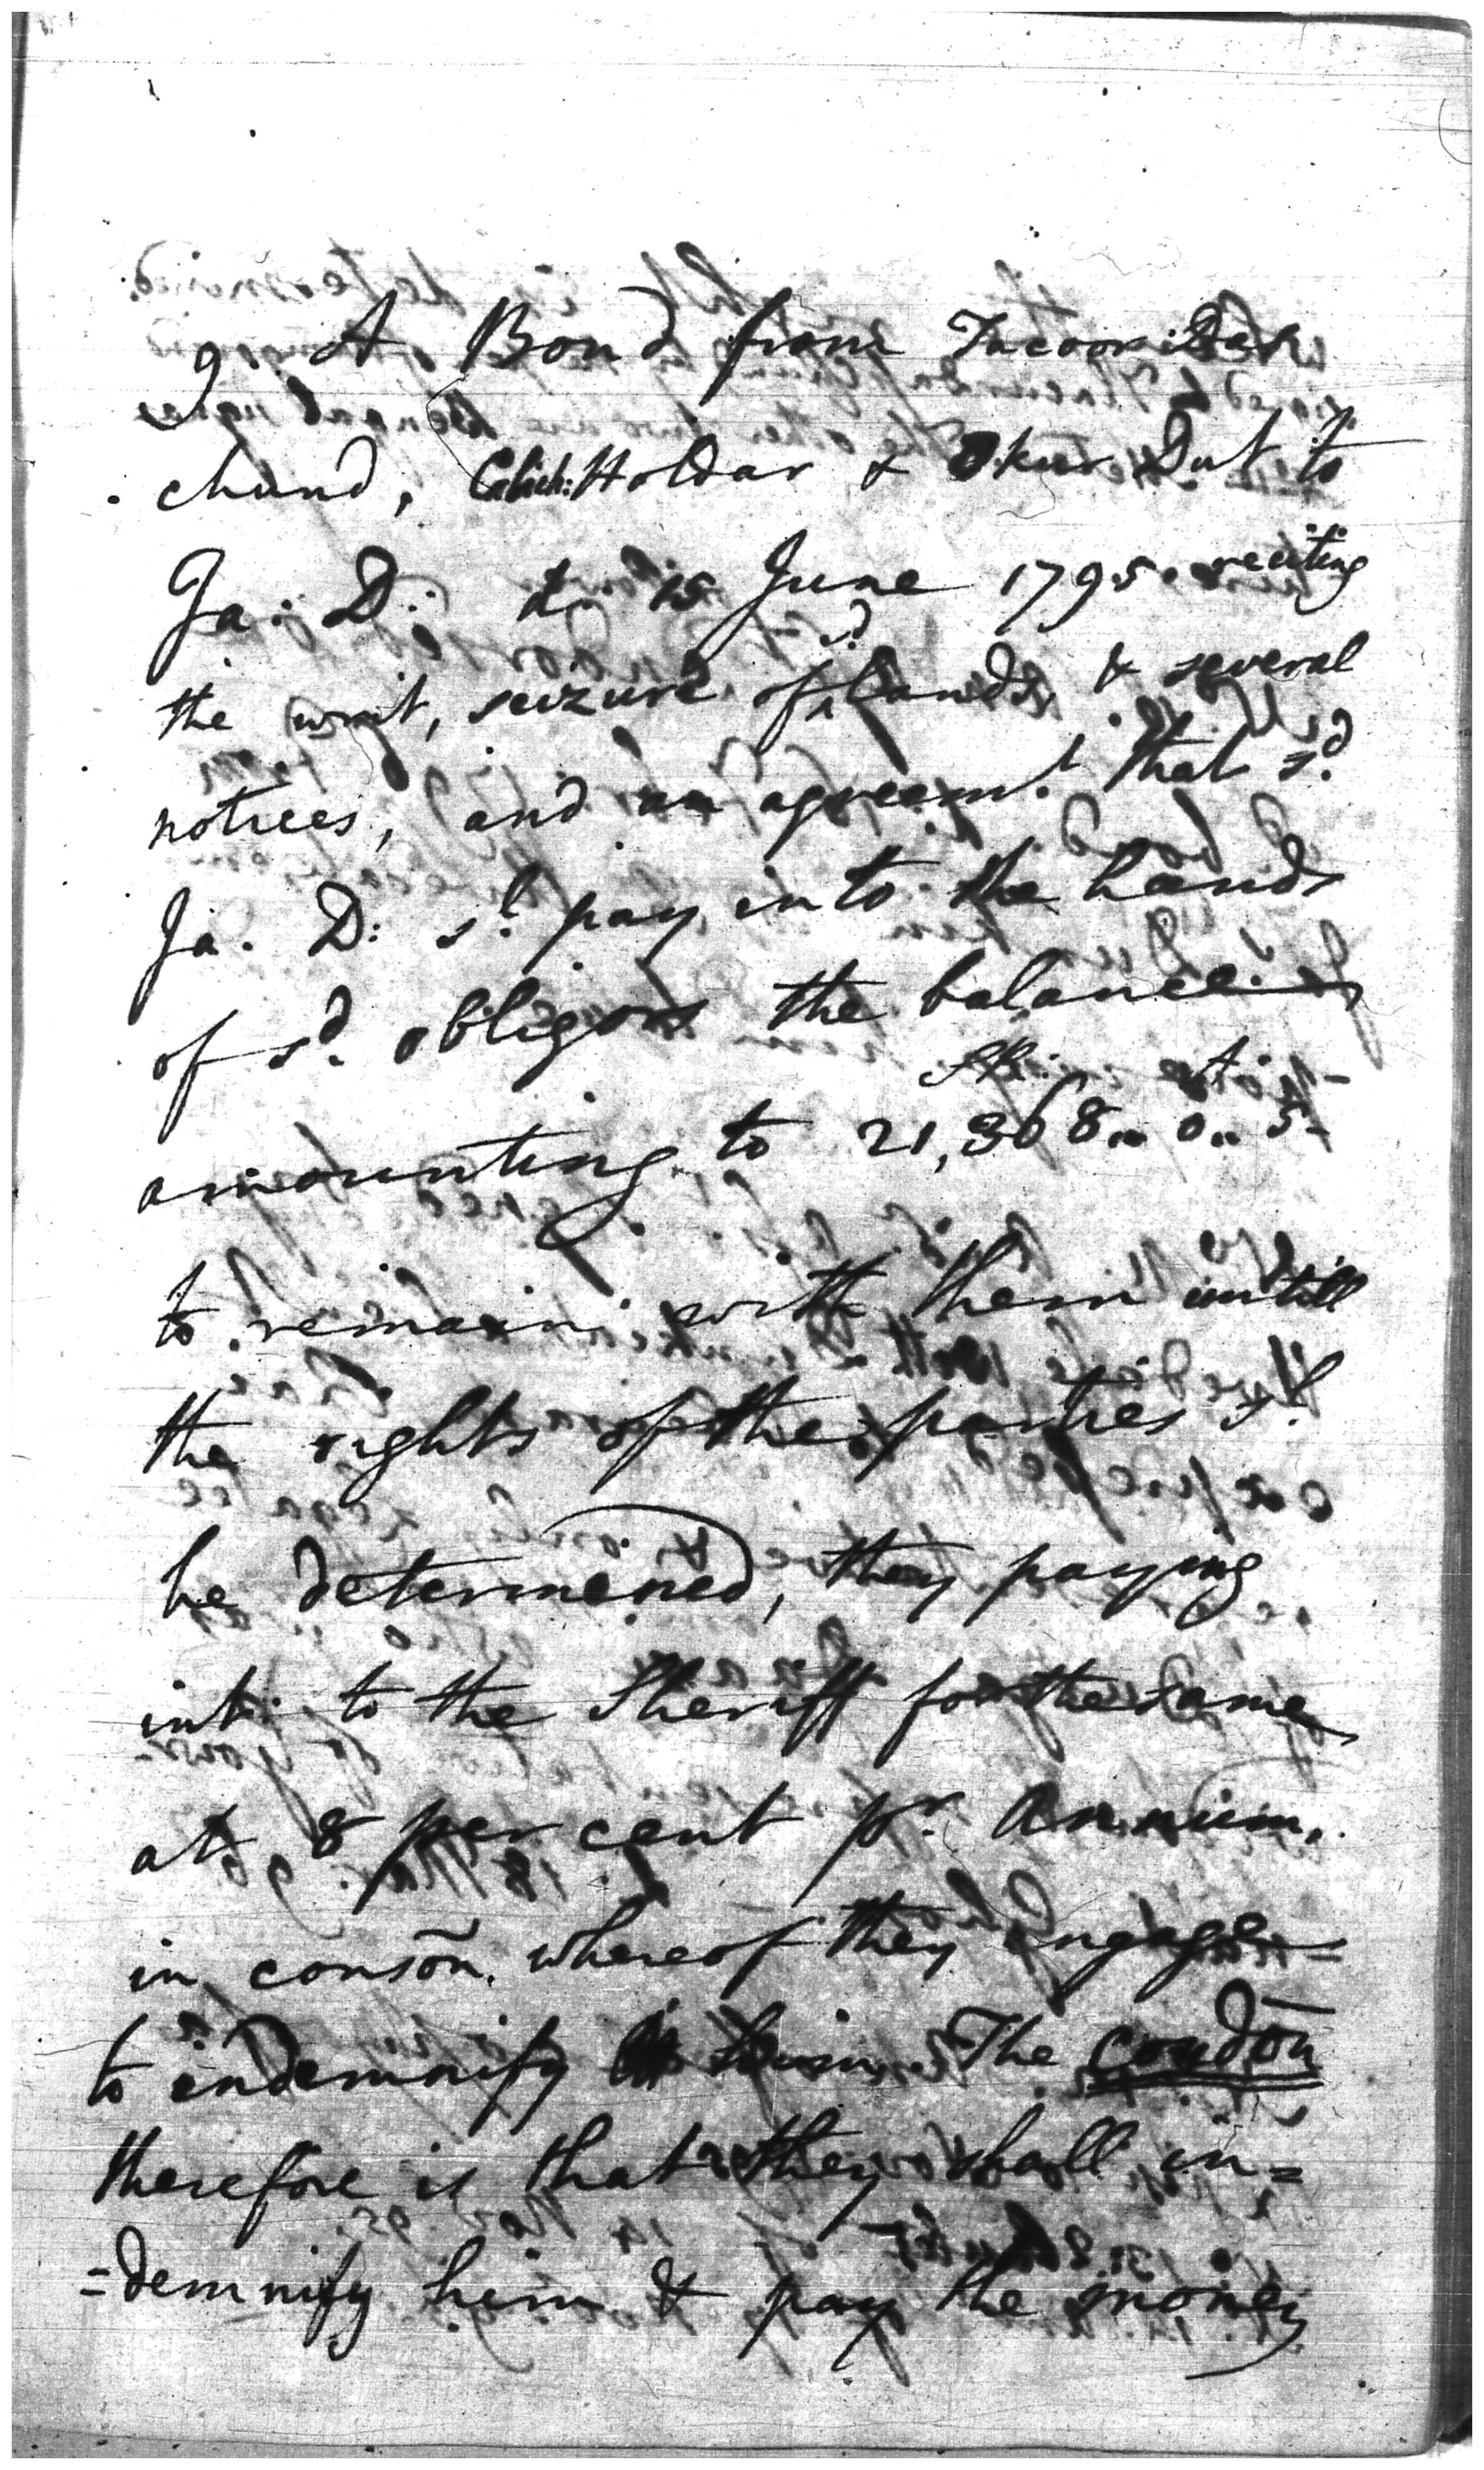 9 A Bond from Tacoor Dass
chund, Calich: Holdar & Okur Dut to
Ja. D: d. 15 June 1795. reciting
the writ, seizure of sd. lands & several
notices, and an agreemt. that sd.
Ja. D: sl. pay into the hands
of sd. obligors the balance
amounting to SR: 21,368.. 0.. 5
to remain with them untill
the rights of the parties sl.
be determened, they paying
int: to the Sheriff for the same
at 8 per cent pr. Annum.
in conson. whereof they engage
to indemnify him The condon
therefore is that they shall in=
=demnify him & pay the money